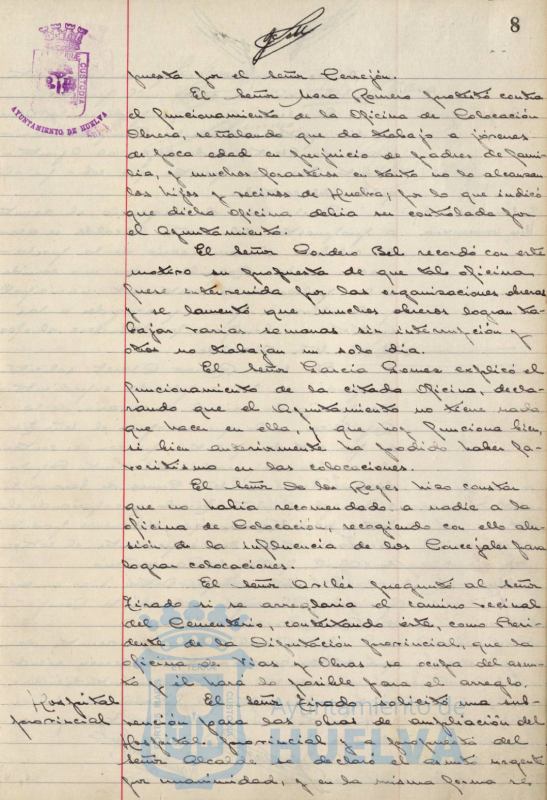 8
AYUNTAMIENTO DE HUELVA
CUSTODIA
puesta por el señor Cerrejón.
El Señor Mora Romero protestó contra
el funcionamiento de la Oficina de Colocación
Obrera, señalando que da trabajo a jóvenes
de poca edad en perjuicio de padres de fami-
lia, y muchos forasteros en tanto no lo alcanzan
los hijos y vecinos de Huelva; por lo que indicó
que dicha Oficina debia ser controlada por
el Ayuntamiento.
El Señor Cordero Bel recordó con este
motivo su propuesta de que tal oficina
fuese intervenida por las organizaciones obreras
y se lamentó que muchos obreros logran tra-
bajar varias semanas sin interrupción y
otros no trabajan un solo dia.
El Señor García Gomez explicó el
funcionamiento de la citada Oficina, decla-
rando que el Ayuntamiento no tiene nada
que hacer en ella, y que hoy funciona bien,
si bien anteriormente ha podido haber fa-
voritismo en las colocaciones.
El señor de los Reyes hizo constar
que no habia recomendado a nadie a la
oficina de Colocación, recogiendo con ello alu-
sión de la influencia de los Concejales para
lograr colocaciones.
El señor Avilés preguntó al señor
Tirado si se arreglaria el camino vecinal
del Cementerio, contestando éste, como Presi-
dente de la Diputación provincial, que la
oficina de Vias y Obras se ocupa del asun-
to y él hará lo posible para el arreglo.
Hospital
provincial
El señor Tirado solicitó una sub-
vención para las obras de ampliación del
Hospital provincial y a propuesta del
señor Alcalde se declaró el asunto urgente
por unanimidad, y en la misma forma se
Ayuntamiento de
HUELVA